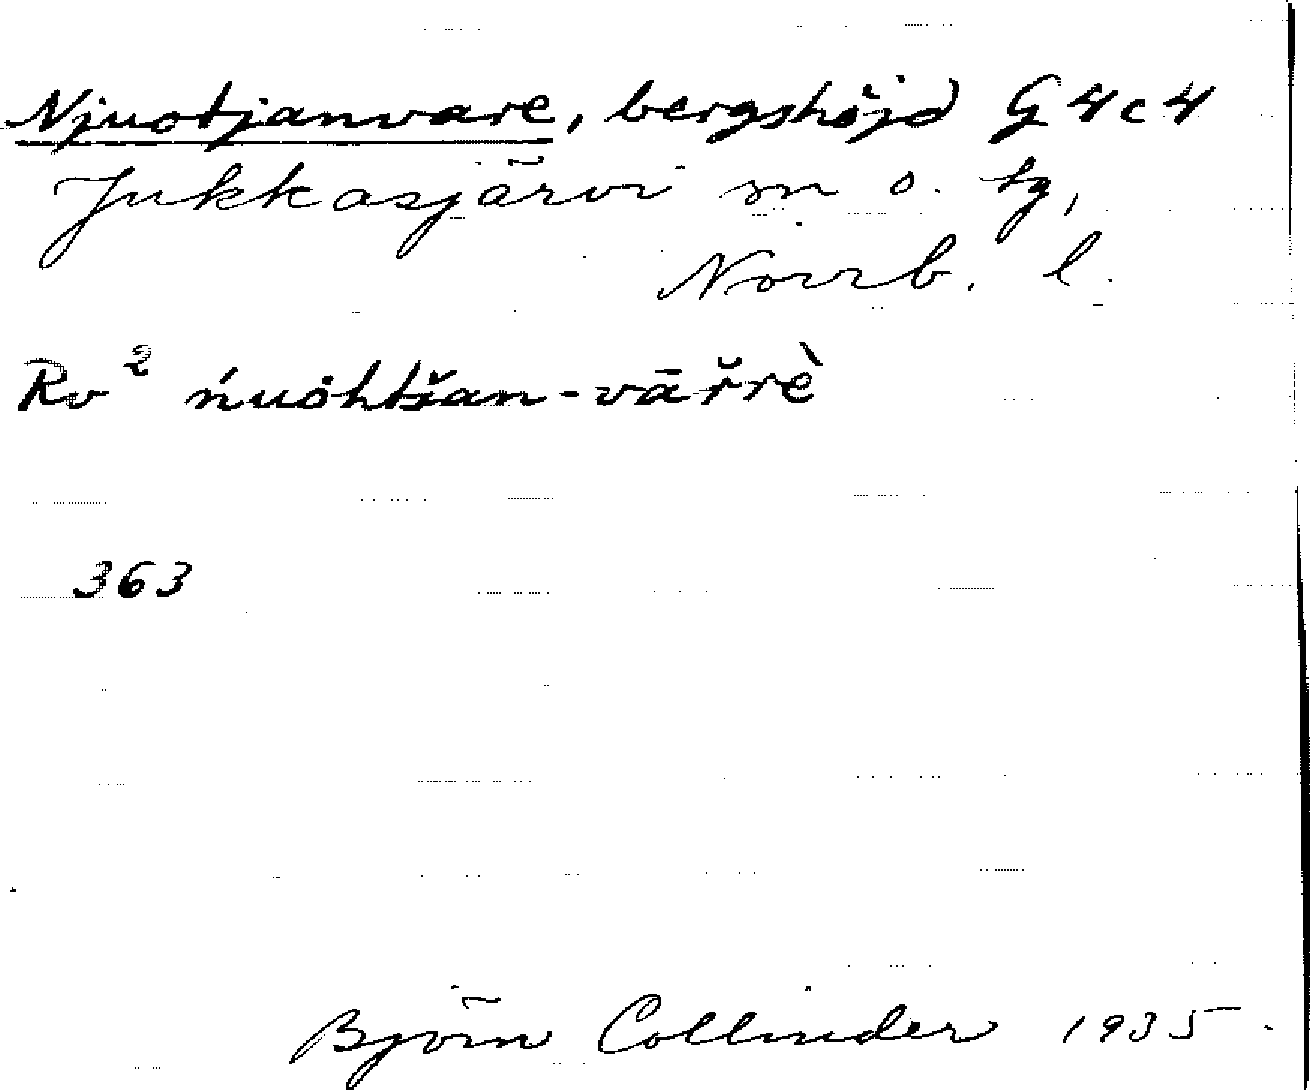 Njuotjanvare, bergshöjd G 4 c 4
Jukkasjärvi sn o. tg,
Norrb. l.
Rv² ńuȯhtšan-vāřrè
363
Björn Collinder 1935.